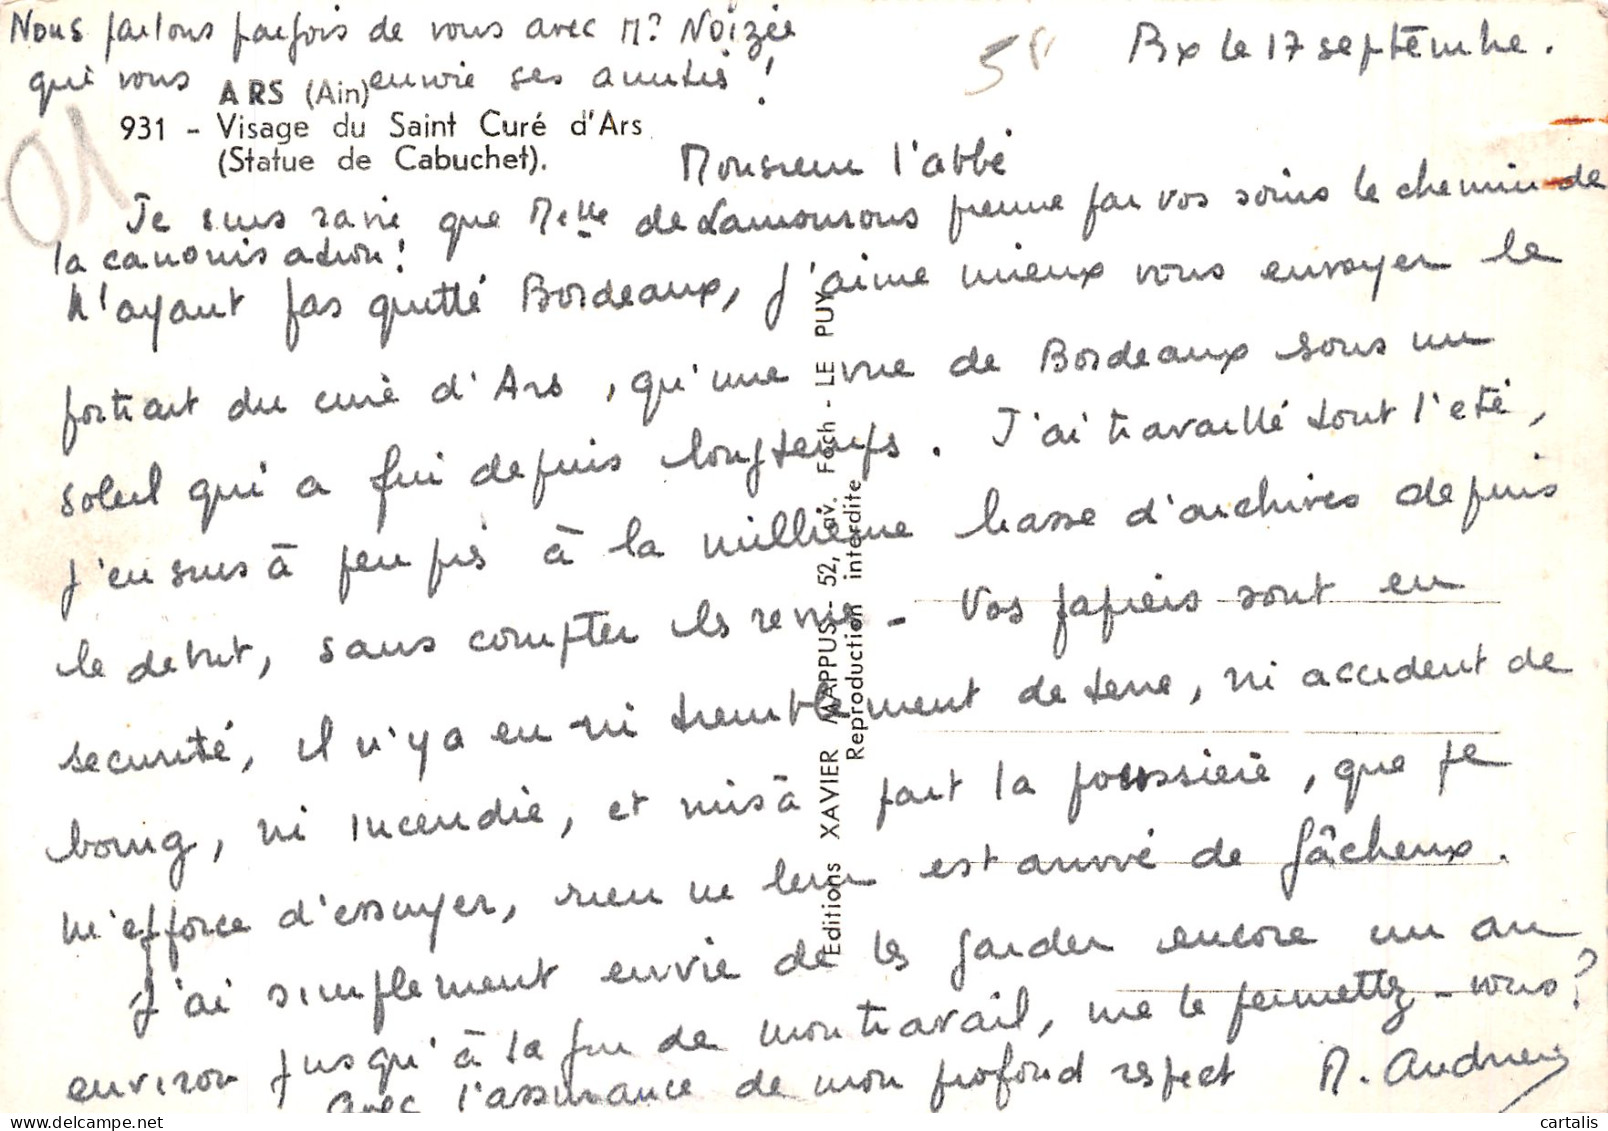 Nous parlons parfois de vous avec Mr Noizée
qui vous envoie ses amitiés !
5F
Bx le 17 septembre.
01
ARS (Ain)
931 - Visage du Saint Curé d'Ars
(Statue de Cabuchet).
Monsieur l'abbé
Je suis ravie que Melle de Lamourous prenne par vos soins le chemin de
la canonisation !
N'ayant pas quitté Bordeaux, j'aime mieux vous envoyer le
portrait du curé d'Ars, qu'une vue de Bordeaux sous un
soleil qui a fui depuis longtemps. J'ai travaillé tout l'été,
j'en suis à peu près à la millième liasse d'archives depuis
le début, sans compter les
- Vos papiers sont en
sécurité, il n'y a eu ni tremblement de terre, ni accident de
boeing, ni incendie, et mis à part la poussière, que je
m'efforce d'essuyer, rien ne leur est arrivé de fâcheux.
J'ai simplement envie de les garder encore un an
environ jusqu'à la fin de mon travail, me le permettez-vous ?
Avec l'assurance de mon profond respect
Editions XAVIER MAPPUS - 52, av. Foch - LE PUY
Reproduction interdite
cartalis